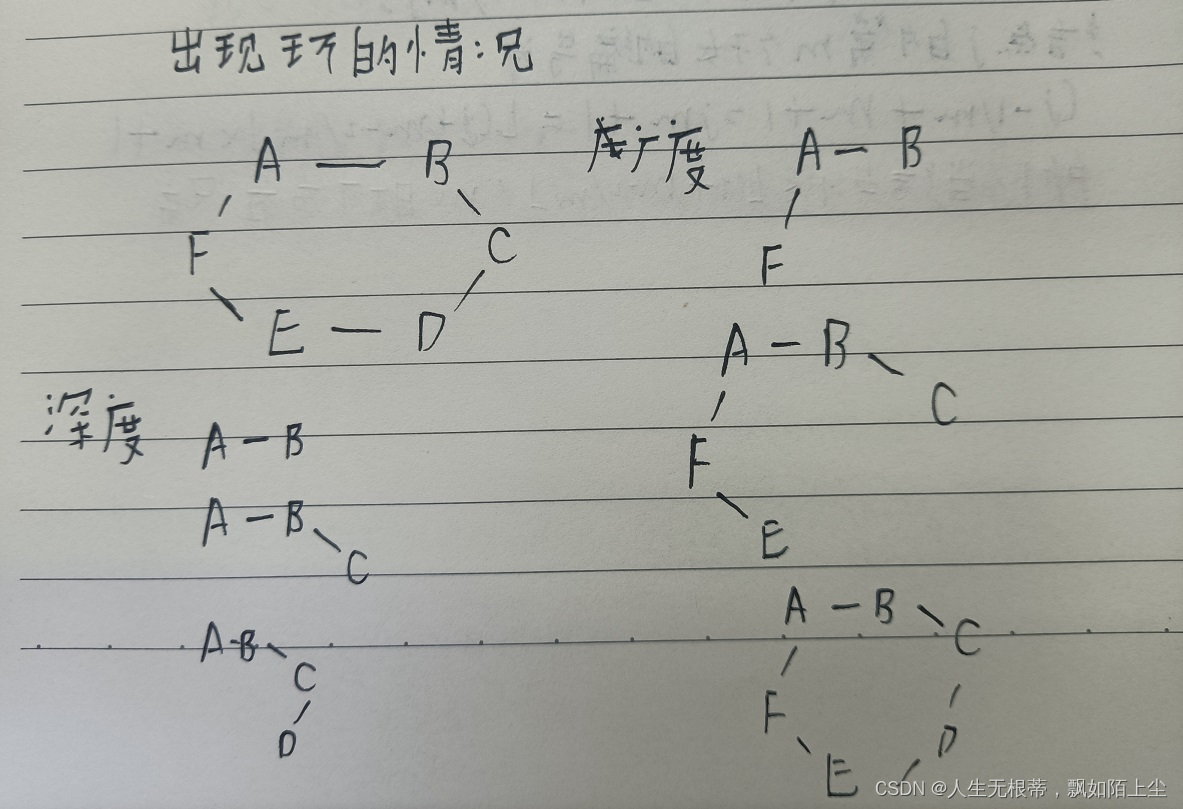 出现环的情况
A — B
F C
E — D
深度
A — B
A — B
C
A-B
C
D
广度
A — B
F
A — B
C
F
E
A — B
C
F
D
E
CSDN @人生无根蒂，飘如陌上尘